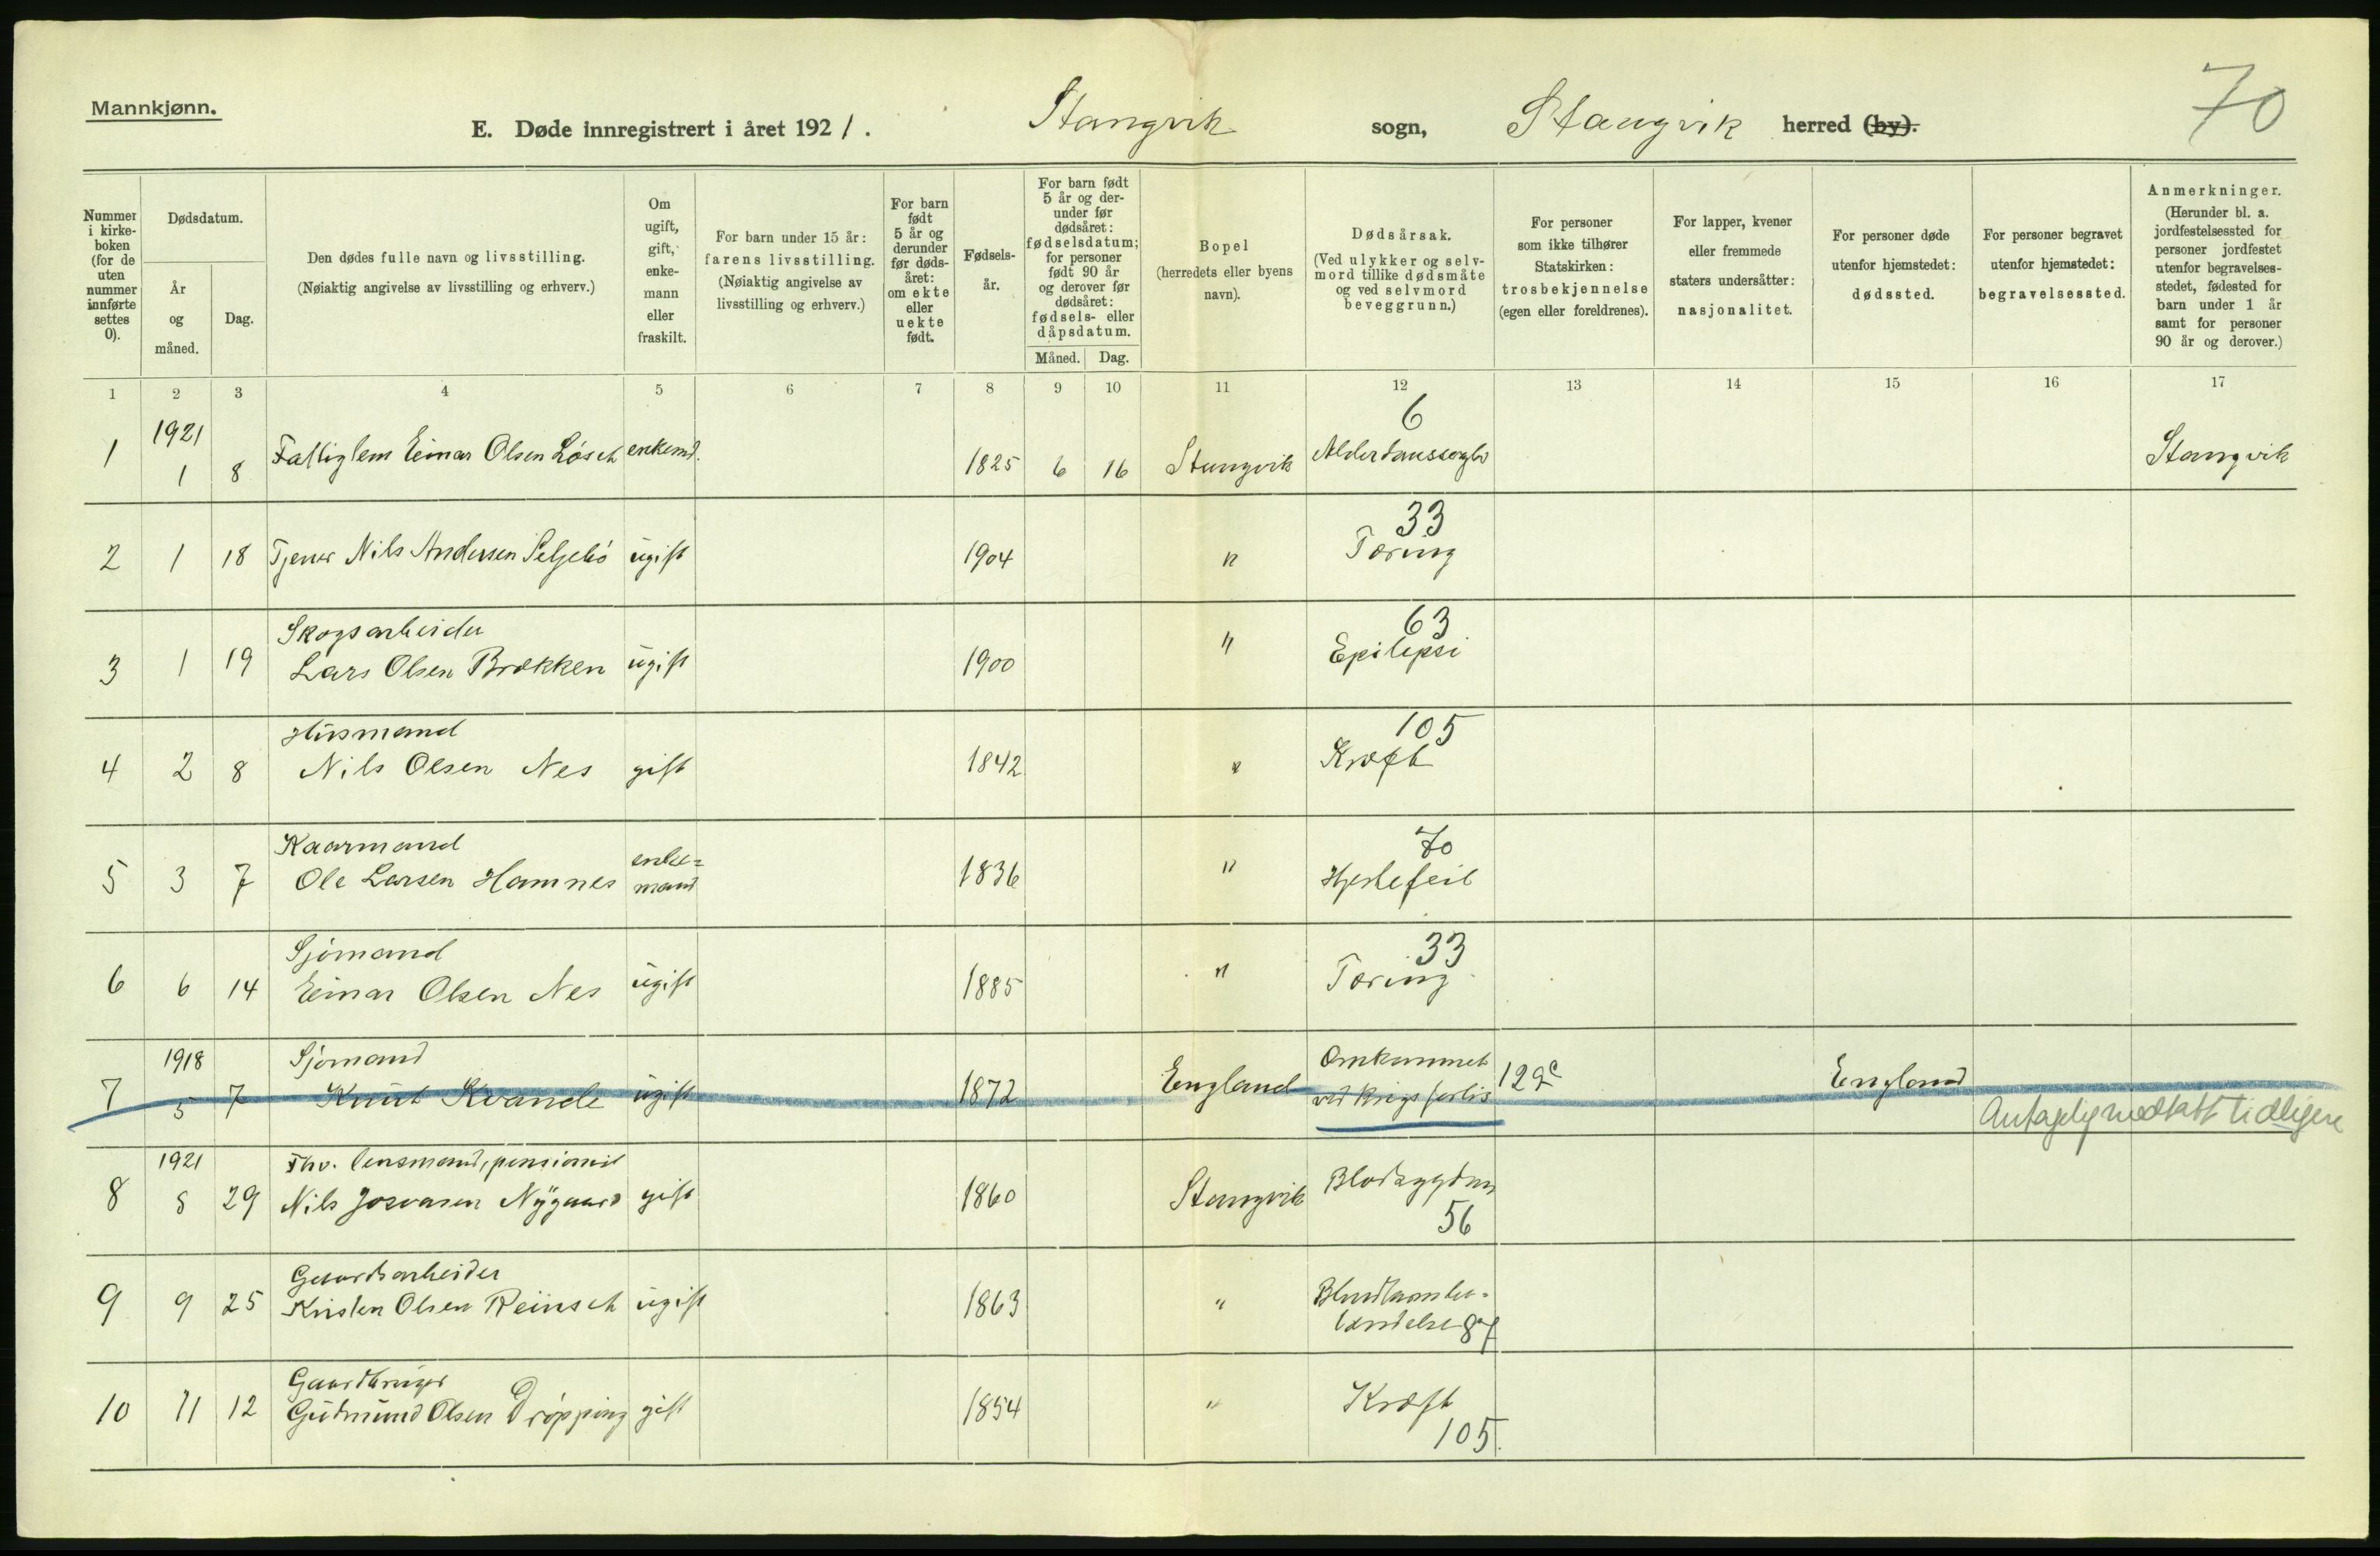 Mannkjønn.
E. Døde innregistrert i året 1921. Stangvik sogn, Stangvik herred (by).
70
Nummer i kirke-boken (for de uten nummer innførte settes 0).
Dødsdatum.
År og måned.
Dag.
Den dødes fulle navn og livsstilling.
(Nøiaktig angivelse av livsstilling og erhverv.)
Om ugift, gift, enke-mann eller fraskilt.
For barn under 15 år: farens livsstilling.
(Nøiaktig angivelse av livsstilling og erhverv.)
For barn født 5 år og derunder før døds-året: om ekte eller uekte født.
Fødsels-år.
For barn født 5 år og der-under før dødsåret: fødselsdatum; for personer født 90 år og derover før dødsåret: fødsels- eller dåpsdatum.
Måned. Dag.
Bopel
(herredets eller byens navn).
Dødsårsak.
(Ved ulykker og selv-mord tillike dødsmåte og ved selvmord beveggrunn.)
For personer som ikke tilhører Statskirken: trosbekjennelse (egen eller foreldrenes).
For lapper, kvener eller fremmede staters undersåtter: nasjonalitet.
For personer døde utenfor hjemstedet: dødssted.
For personer begravet utenfor hjemstedet: begravelsessted.
Anmerkninger.
(Herunder bl. a. jordfestelsessted for personer jordfestet utenfor begravelses-stedet, fødested for barn under 1 år samt for personer 90 år og derover.)
1 2 3 4 5 6 7 8 9 10 11 12 13 14 15 16 17
1921 6
1 1 8 Fattiglem Einar Olsen enkemd. 1825 6 16 Stangvik Stangvik
33
2 1 18 Tjener Nils Andersen ugift 1904 " Tæring
Skogsarbeider 63
3 1 19 Lars Olsen Brækken ugift 1900 " Epilepsi
Husmand 105
4 2 8 Nils Olsen Nes gift 1842 " Kræft
Kaarmand enke= 70
5 3 7 Ole Larsen Hamnes mand 1836 " Hjertefeil
Sjømand 33
6 6 14 Einar Olsen Nes ugift 1885 " Tæring
1918 Sjømand Omkommet
7 5 7 Knut Kvande ugift 1872 England ved krigsforlis 129c England
Antagelig medtatt tidligere
1921 Fhv. lensmand, pensionist
8 5 29 Nils Josvasen Nygaard gift 1860 Stangvik
56
Gaardsarbeider
9 9 25 Kristen Olsen ugift 1863 "
87
Gaardbruger
10 11 12 Gudmund Olsen Drøpping gift 1854 " Kræft
105.